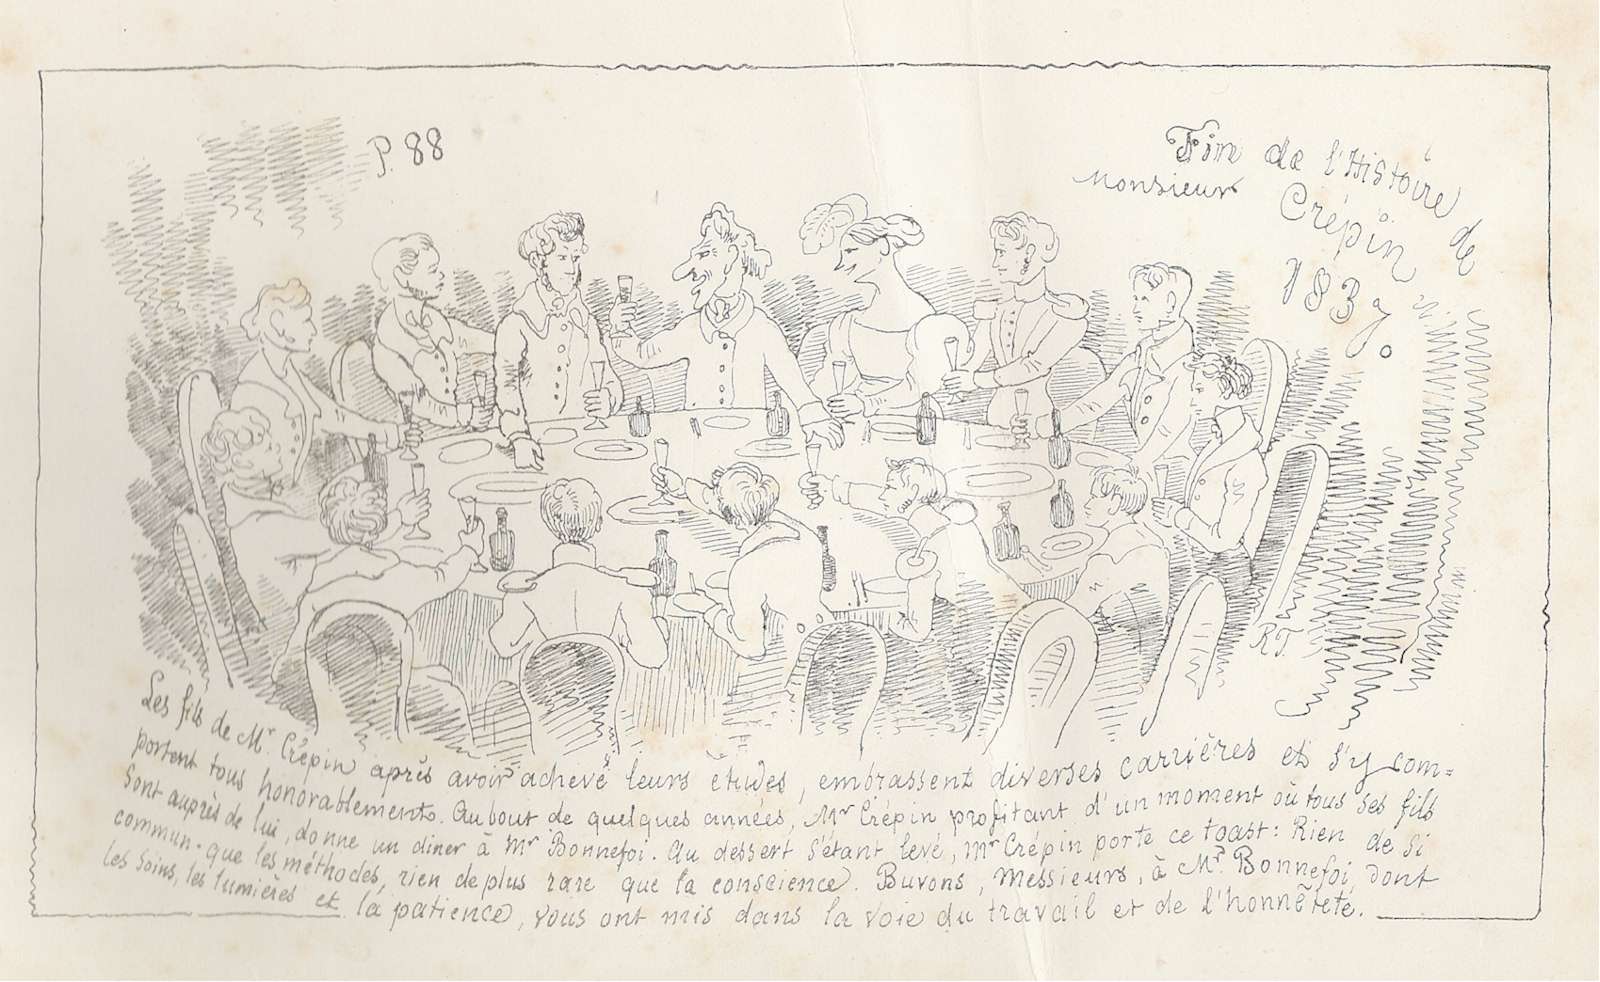 P. 88
Fin de l'Histoire de
Monsieur Crépin
1837.
R.T.
Les fils de Mr Crépin après avoir achevé leurs études, embrassent diverses carrières et s'y com=
portent tous honorablement. Au bout de quelques années, Mr Crépin profitant d'un moment où tous ses fils
sont auprès de lui, donne un diner à Mr Bonnefoi. Au dessert s'étant levé, Mr Crépin porte ce toast: Rien de si
commun que les méthodes, rien de plus rare que la conscience. Buvons, Messieurs, à Mr Bonnefoi, dont
les soins, les lumières et la patience, vous ont mis dans la voie du travail et de l'honnêteté.